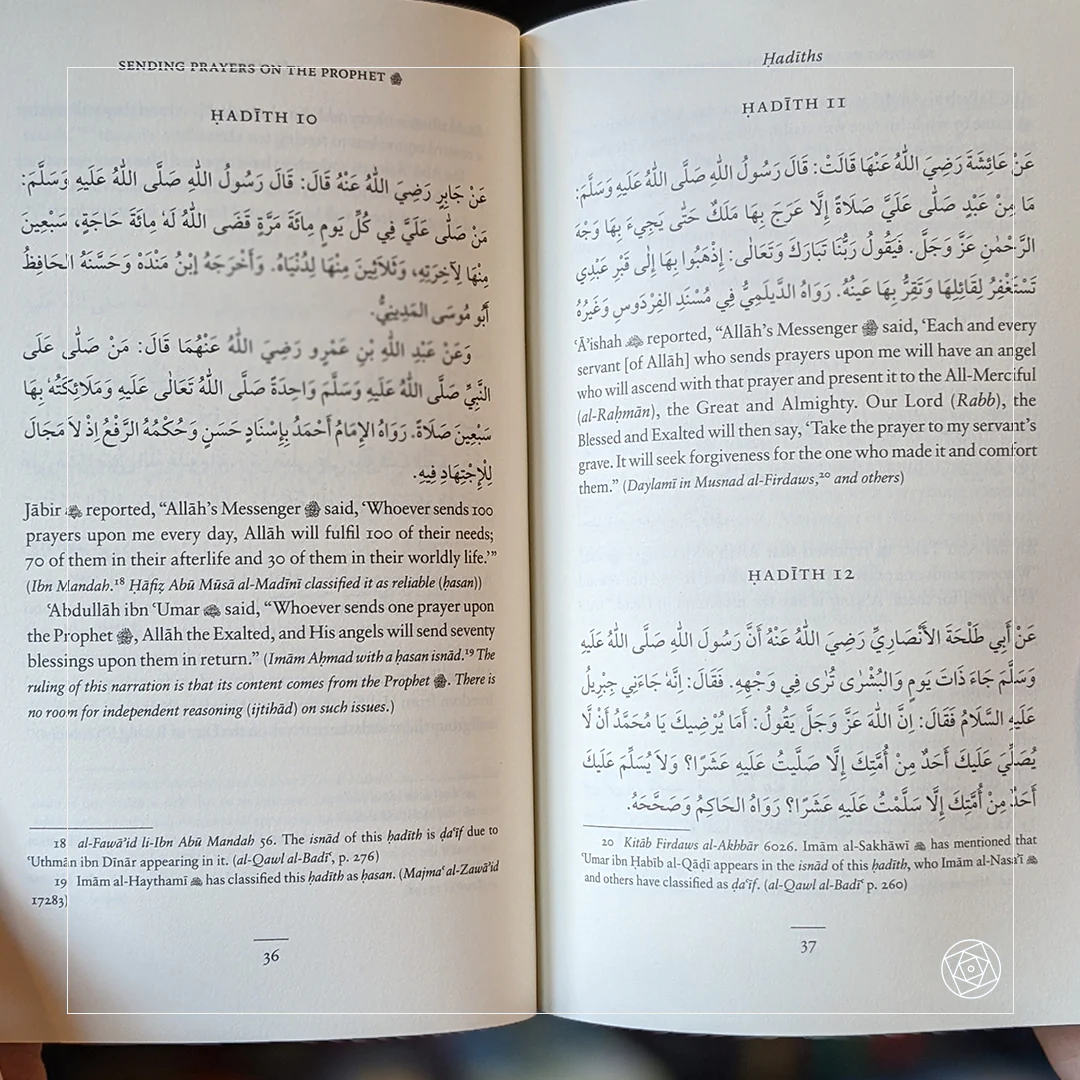 SENDING PRAYERS ON THE PROPHET ﷺ
ḤADĪTH 10
عَنْ جَابِرٍ رَضِيَ اللّٰهُ عَنْهُ قَالَ: قَالَ رَسُولُ اللّٰهِ صَلَّى اللّٰهُ عَلَيْهِ وَسَلَّمَ:
مَنْ صَلّٰى عَلَيَّ فِي كُلِّ يَومٍ مِائَةَ مَرَّةٍ قَضَى اللّٰهُ لَهُ مِائَةَ حَاجَةٍ، سَبْعِينَ
مِنْهَا لِآخِرَتِهِ، وَثَلَاثِينَ مِنْهَا لِدُنْيَاهُ. وَأَخْرَجَهُ اِبْنُ مَنْدَهْ وَحَسَّنَهُ الحَافِظُ
أَبُو مُوسَى المَدِينِيُّ.
وَعَنْ عَبْدِ اللّٰهِ بْنِ عَمْرٍو رَضِيَ اللّٰهُ عَنْهُمَا قَالَ: مَنْ صَلّٰى عَلَى
النَّبِيِّ صَلَّى اللّٰهُ عَلَيْهِ وَسَلَّمَ وَاحِدَةً صَلَّى اللّٰهُ تَعَالَى عَلَيْهِ وَمَلَائِكَتُهُ بِهَا
سَبْعِينَ صَلَاةً. رَوَاهُ الإِمَامُ أَحْمَدُ بِإِسْنَادٍ حَسَنٍ وَحُكْمُهُ الرَّفْعُ اِذْ لاَ مَجَالَ
لِلْاِجْتِهَادِ فِيهِ.
Jābir reported, “Allāh’s Messenger ﷺ said, ‘Whoever sends 100
prayers upon me every day, Allāh will fulfil 100 of their needs;
70 of them in their afterlife and 30 of them in their worldly life.’”
(Ibn Mandah.¹⁸ Ḥāfiẓ Abū Mūsā al-Madīnī classified it as reliable (ḥasan))
ʿAbdullāh ibn ʿUmar said, “Whoever sends one prayer upon
the Prophet ﷺ, Allāh the Exalted, and His angels will send seventy
blessings upon them in return.” (Imām Aḥmad with a ḥasan isnād.¹⁹ The
ruling of this narration is that its content comes from the Prophet ﷺ. There is
no room for independent reasoning (ijtihād) on such issues.)
18 al-Fawāʾid li-Ibn Abū Mandah 56. The isnād of this ḥadīth is ḍaʿīf due to
ʿUthmān ibn Dīnār appearing in it. (al-Qawl al-Badīʿ, p. 276)
19 Imām al-Haythamī has classified this ḥadīth as ḥasan. (Majmaʿ al-Zawāʾid
17283)
36
Ḥadīths
ḤADĪTH 11
عَنْ عَائِشَةَ رَضِيَ اللّٰهُ عَنْهَا قَالَتْ: قَالَ رَسُولُ اللّٰهِ صَلَّى اللّٰهُ عَلَيهِ وَسَلَّمَ:
مَا مِنْ عَبْدٍ صَلّٰى عَلَيَّ صَلاَةً إِلَّا عَرَجَ بِهَا مَلَكٌ حَتّٰى يَجِيءَ بِهَا وَجْهَ
الرَّحْمٰنِ عَزَّ وَجَلَّ. فَيَقُولُ رَبُّنَا تَبَارَكَ وَتَعَالٰى: اِذْهَبُوا بِهَا إِلٰى قَبْرِ عَبْدِي
تَسْتَغْفِرُ لِقَائِلِهَا وَتَقِرُّ بِهَا عَينُهُ. رَوَاهُ الدَّيلَمِيُّ فِي مُسْنَدِ الفِرْدَوسِ وَغَيرُهُ
ʿĀʾishah reported, “Allāh’s Messenger ﷺ said, ‘Each and every
servant [of Allāh] who sends prayers upon me will have an angel
who will ascend with that prayer and present it to the All-Merciful
(al-Raḥmān), the Great and Almighty. Our Lord (Rabb), the
Blessed and Exalted will then say, ‘Take the prayer to my servant’s
grave. It will seek forgiveness for the one who made it and comfort
them.” (Daylamī in Musnad al-Firdaws,²⁰ and others)
ḤADĪTH 12
عَنْ أَبِي طَلْحَةَ الأَنْصَارِيِّ رَضِيَ اللّٰهُ عَنْهُ أَنَّ رَسُولَ اللّٰهِ صَلَّى اللّٰهُ عَلَيْهِ
وَسَلَّمَ جَاءَ ذَاتَ يَومٍ وَالبُشْرٰى تُرٰى فِي وَجْهِهِ. فَقَالَ: اِنَّهُ جَاءَنِي جِبْرِيلُ
عَلَيهِ السَّلَامُ فَقَالَ: اِنَّ اللّٰهَ عَزَّ وَجَلَّ يَقُولُ: أَمَا يُرْضِيكَ يَا مُحَمَّدُ أَنْ لَّا
يُصَلِّيَ عَلَيكَ أَحَدٌ مِنْ أُمَّتِكَ إِلَّا صَلَّيتُ عَلَيهِ عَشْرًا؟ وَلاَ يُسَلِّمَ عَلَيكَ
أَحَدٌ مِنْ أُمَّتِكَ إِلَّا سَلَّمْتُ عَلَيهِ عَشْرًا؟ رَوَاهُ الحَاكِمُ وَصَحَّحَهُ.
20 Kitāb Firdaws al-Akhbār 6026. Imām al-Sakhāwī has mentioned that
ʿUmar ibn Ḥabīb al-Qāḍī appears in the isnād of this ḥadīth, who Imām al-Nasāʾī
and others have classified as ḍaʿīf. (al-Qawl al-Badīʿ p. 260)
37